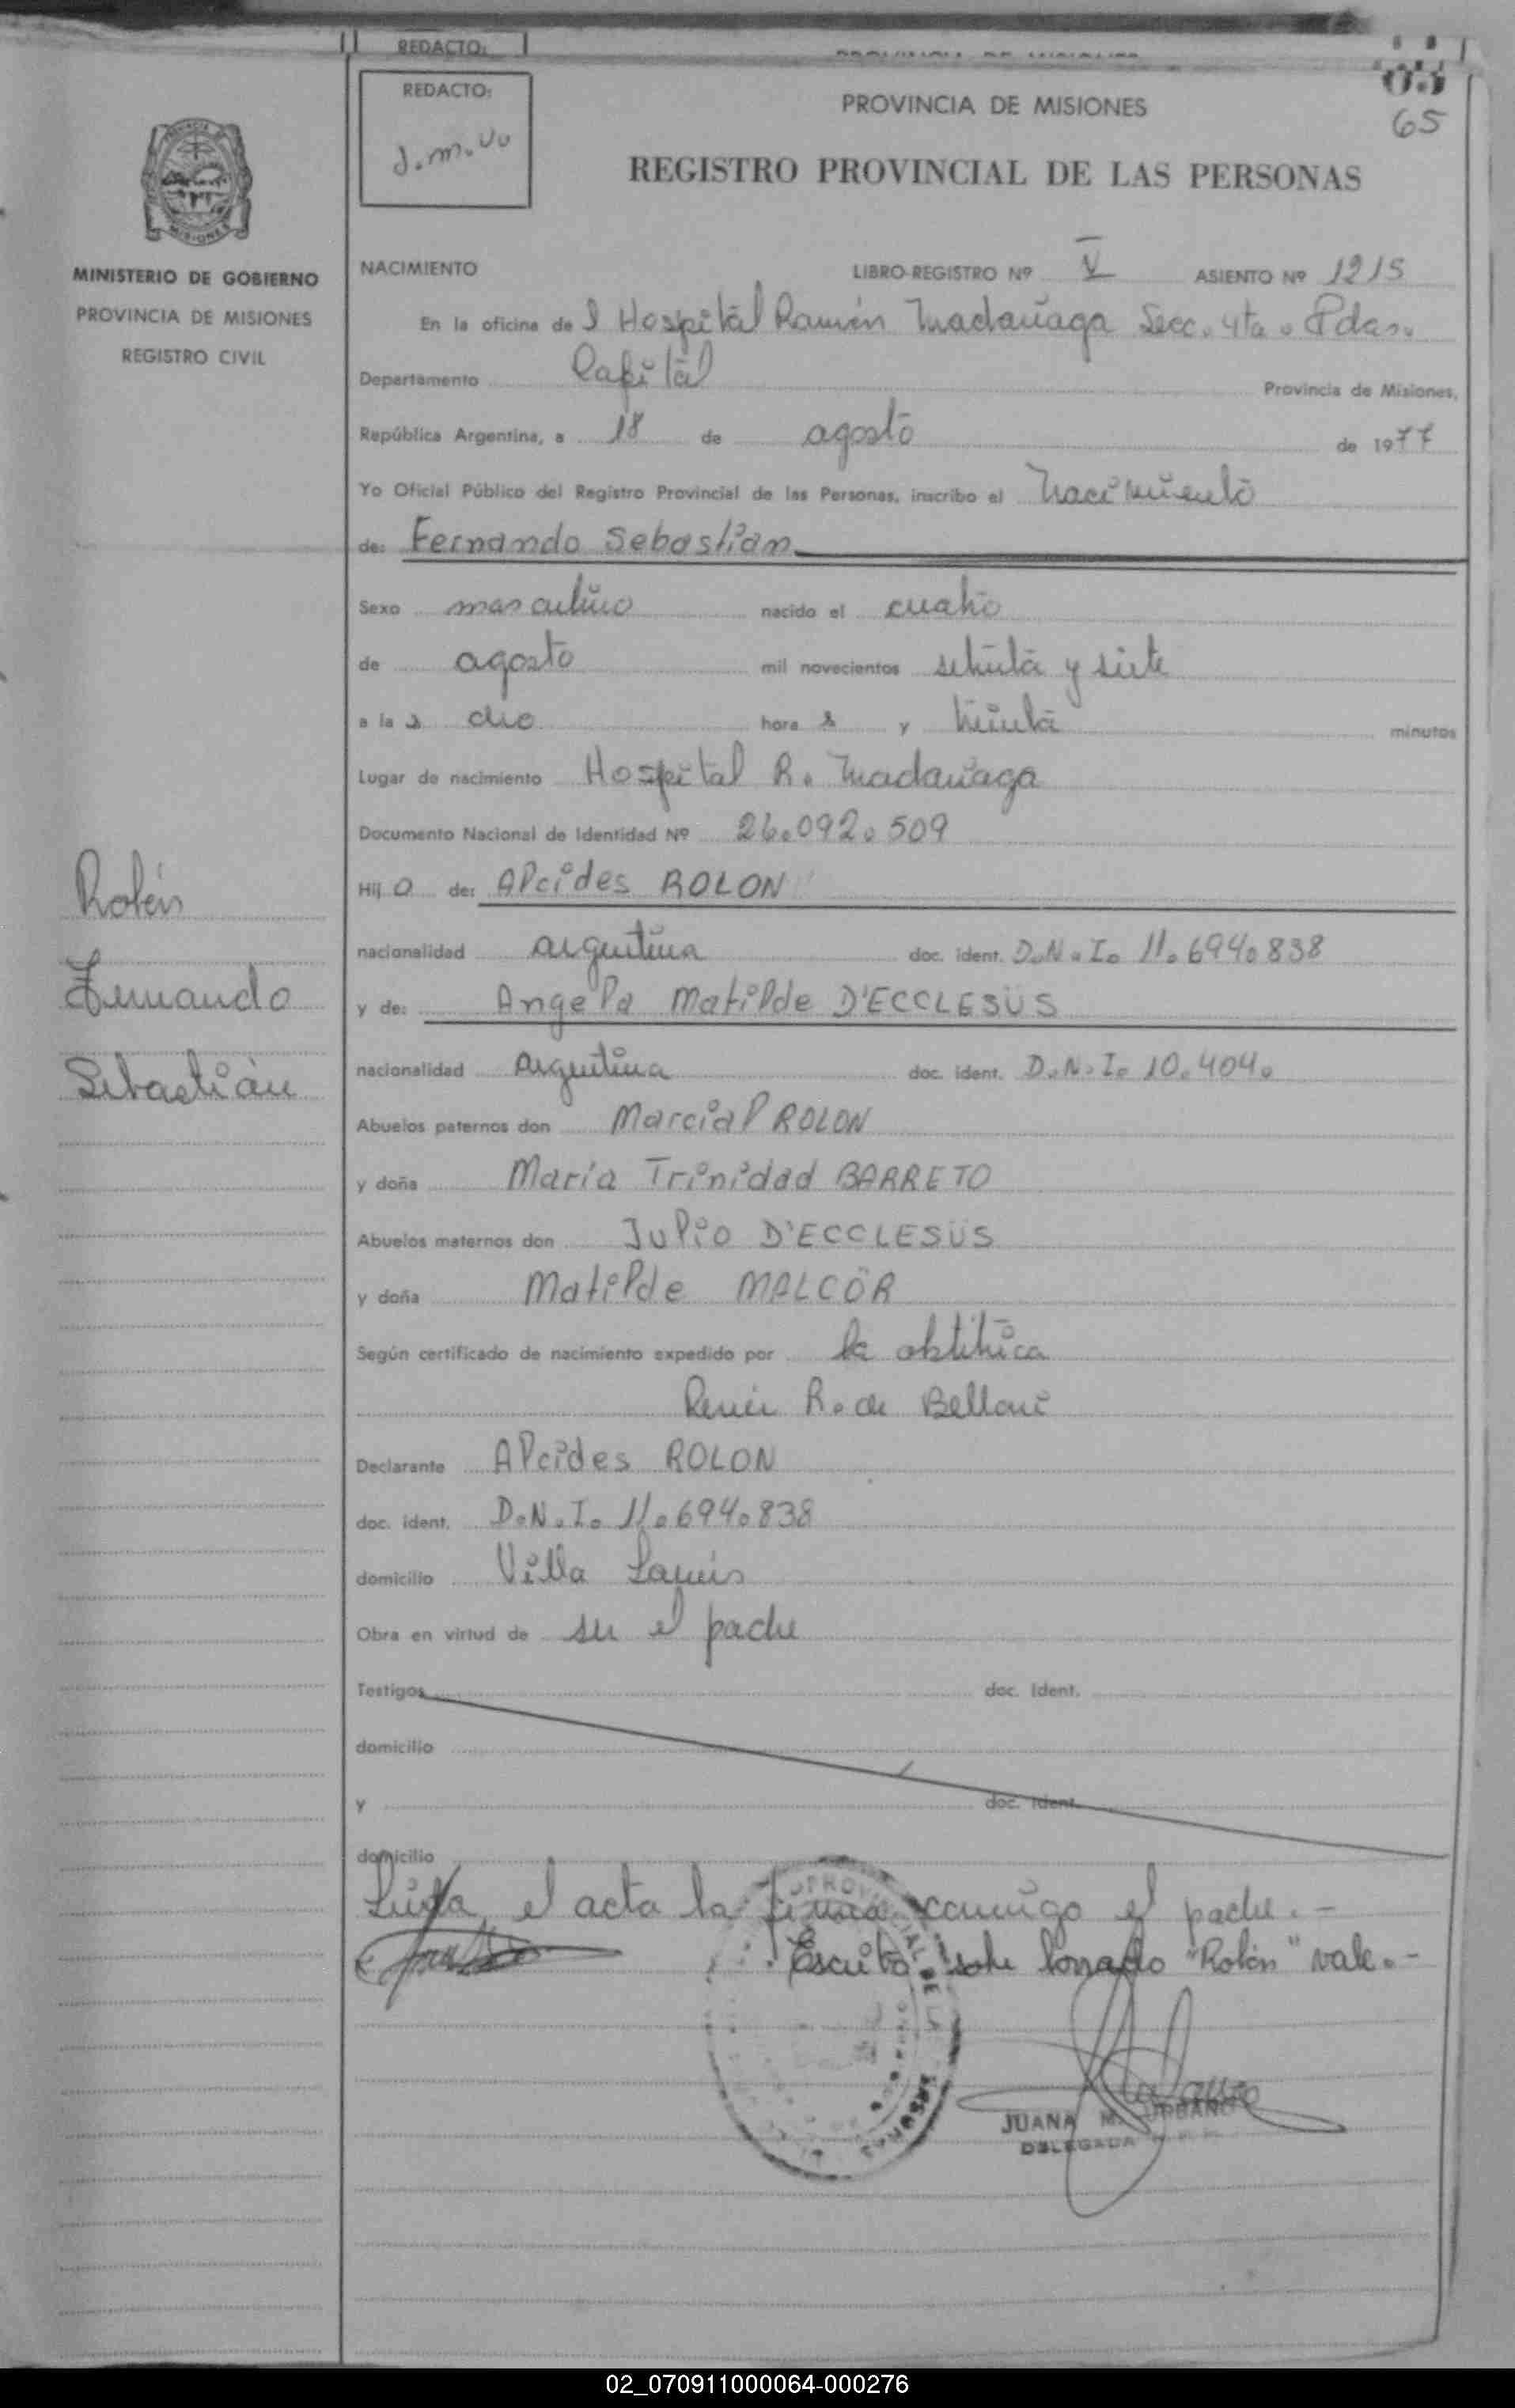 REDACTO:
PROVINCIA DE MISIONES
65
REDACTO:
PROVINCIA DE MISIONES
65
J.m.Uo
REGISTRO PROVINCIAL DE LAS PERSONAS
MISIONES
MINISTERIO DE GOBIERNO
PROVINCIA DE MISIONES
REGISTRO CIVIL
NACIMIENTO LIBRO-REGISTRO Nº V ASIENTO Nº 1215
En la oficina de l Hospital Ramón Madariaga Secc. 4ta. Pdas.
Departamento Capital Provincia de Misiones,
República Argentina, a 18 de agosto de 1977
Yo Oficial Público del Registro Provincial de las Personas, inscribo el Nacimiento
de: Fernando Sebastián
Sexo masculino nacido el cuatro
de agosto mil novecientos setenta y siete
a la s ocho hora s y treinta minutos
Lugar de nacimiento Hospital R. Madariaga
Documento Nacional de Identidad Nº 26.092.509
Hij o de: Alcides ROLON
nacionalidad argentina doc. ident. D.N.I. 11.694.838
y de: Angela Matilde D'ECCLESIIS
nacionalidad Argentina doc. ident. D.N.I. 10.404.
Abuelos paternos don Marcial ROLON
y doña María Trinidad BARRETO
Abuelos maternos don Julio D'ECCLESIIS
y doña Matilde MALCÖR
Según certificado de nacimiento expedido por la obstétrica
R. de Belloni
Declarante Alcides ROLON
doc. ident. D.N.I. 11.694.838
domicilio Villa Lanús
Obra en virtud de ser el padre
Testigos doc. ident.
domicilio
y doc. ident.
domicilio
Leída el acta la firma conmigo el padre.-
Escrito sobre borrado "Rolón" vale.-
JUANA M. URBANO
DELEGADA
Rolón
Fernando
Sebastián
02_070911000064-000276